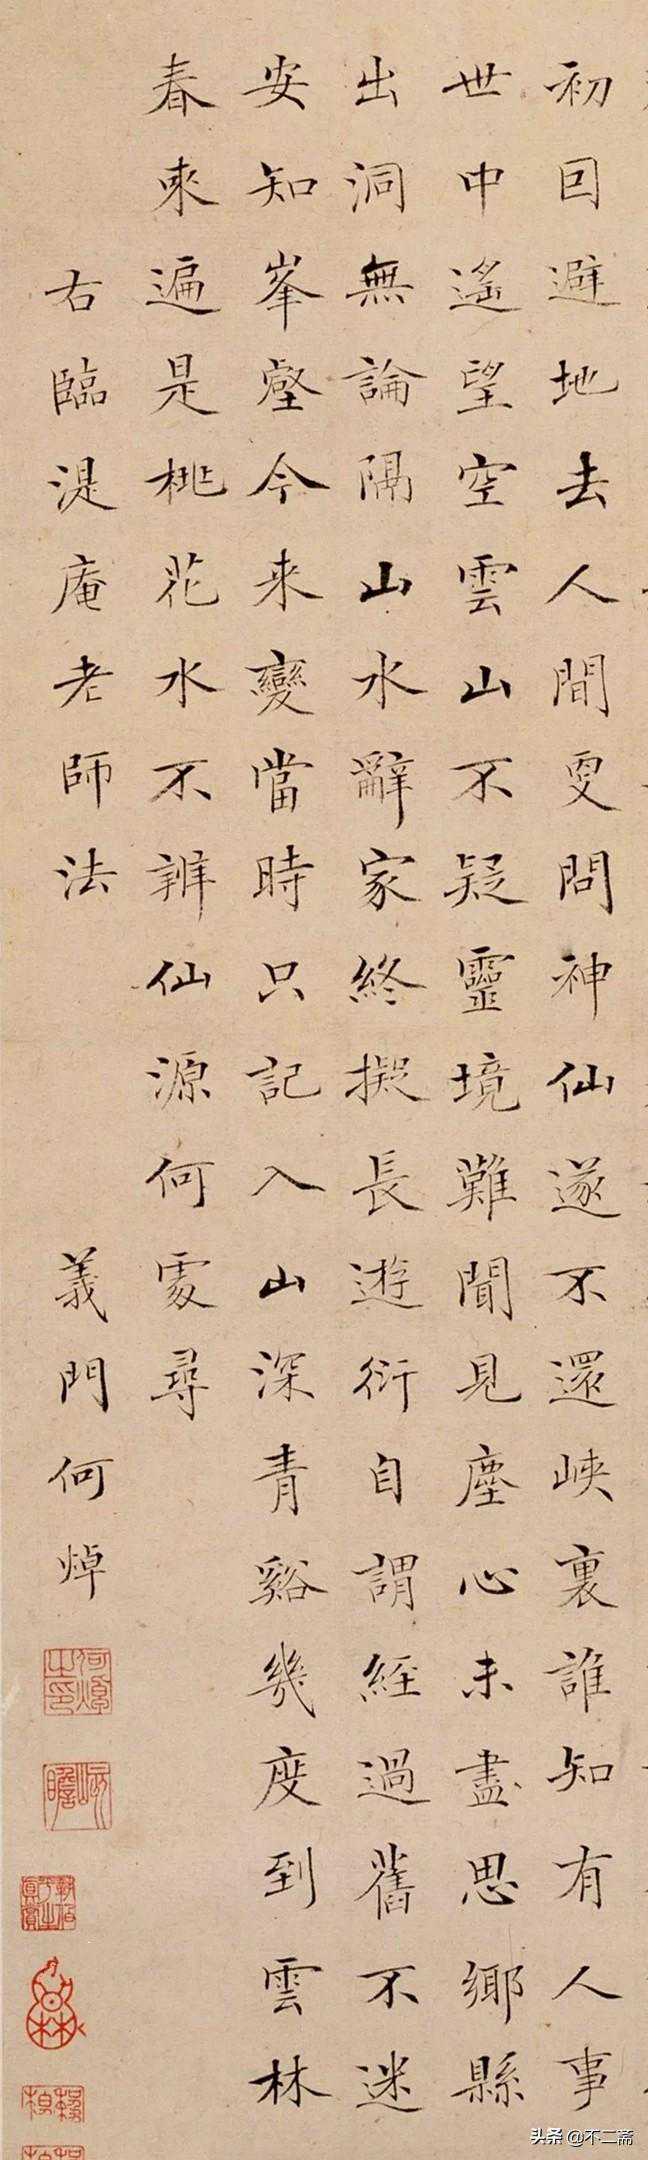 初因避地去人間更問神仙遂不還峽裏誰知有人事
世中遙望空雲山不疑靈境難聞見塵心未盡思鄉縣
出洞無論隔山水辭家終擬長遊衍自謂經過舊不迷
安知峯壑今来變當時只記入山深青谿幾度到雲林
春來遍是桃花水不辨仙源何處尋
右臨湜庵老師法 義門何焯
何焯之印
屺瞻
头条 @不二斋